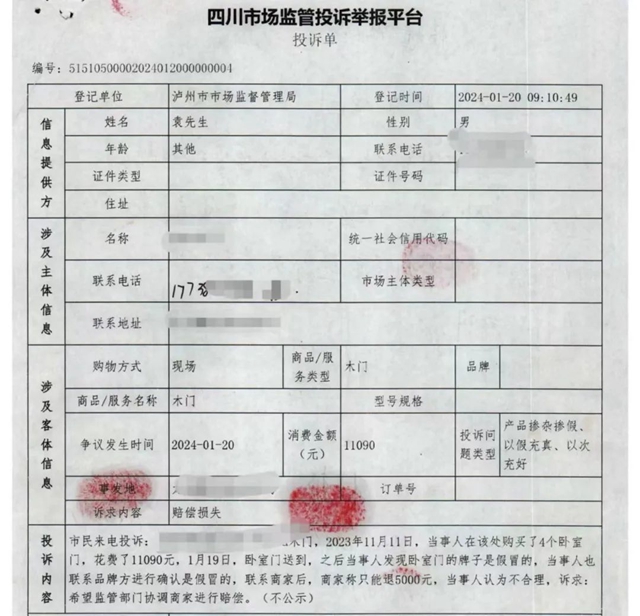 四川市场监管投诉举报平台
投诉单
编号：51510500002024012000000004
登记单位 泸州市市场监督管理局 登记时间 2024-01-20 09:10:49
信息提供方
姓名 袁先生 性别 男
年龄 其他 联系电话
证件类型 证件号码
住址
涉及主体信息
名称 统一社会信用代码
联系电话 177 市场主体类型
联系地址
涉及客体信息
购物方式 现场 商品/服务类型 木门 品牌
商品/服务名称 木门 型号规格
争议发生时间 2024-01-20 消费金额（元） 11090 投诉问题类型 产品掺杂掺假、以假充真、以次充好
事发地 订单号
诉求内容 赔偿损失
投诉内容
市民来电投诉： 木门，2023年11月11日，当事人在该处购买了4个卧室
门，花费了11090元，1月19日，卧室门送到，之后当事人发现卧室门的牌子是假冒的，当事人也
联系品牌方进行确认是假冒的，联系商家后，商家称只能退5000元，当事人认为不合理，诉求：
希望监管部门协调商家进行赔偿。（不公示）